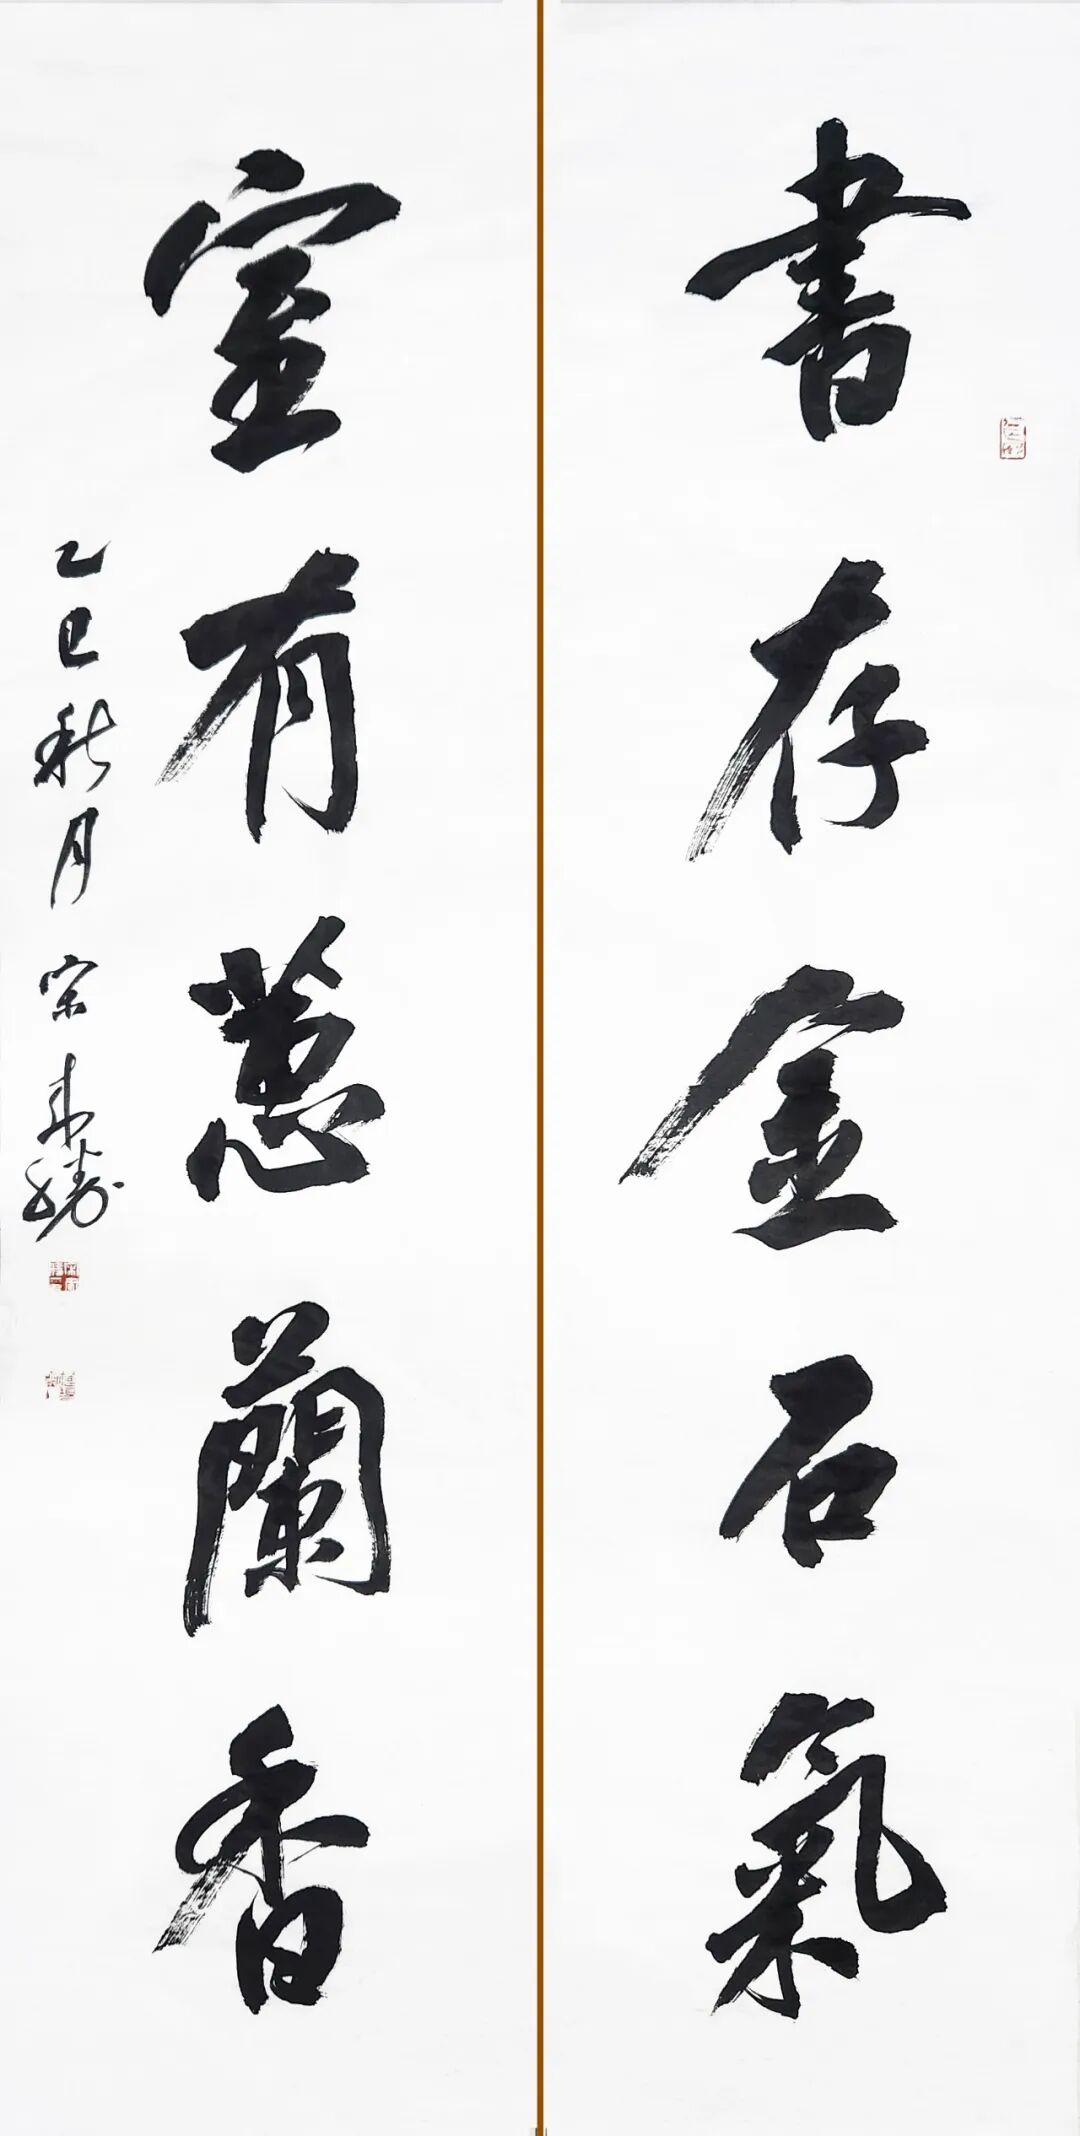 書存金石氣
室有蕙蘭香
乙巳秋月宋来勝